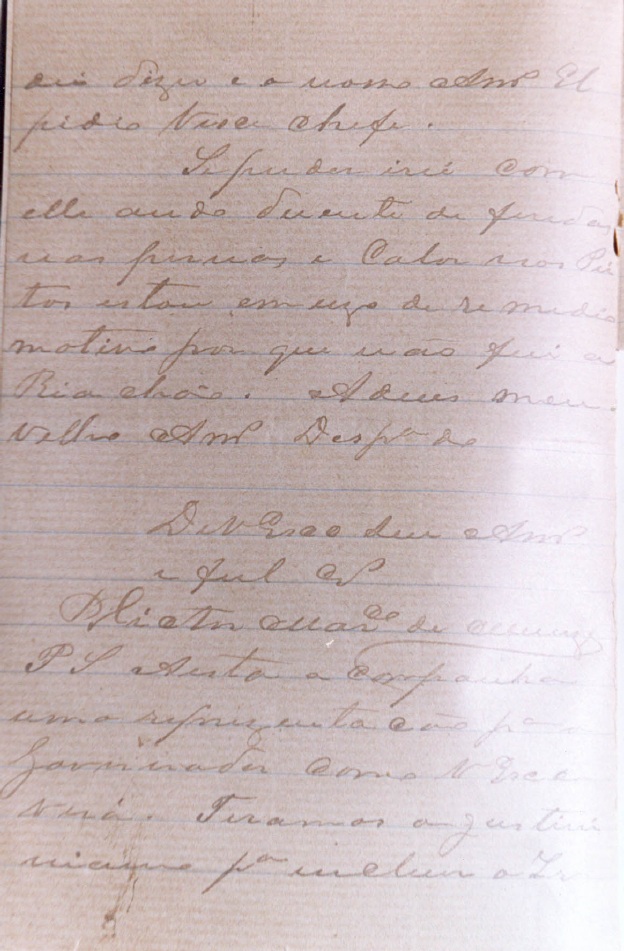 dizer e o nosso Amº El
pidio Vice chefe.
Se puder irei com
elle ando duente de feridas
nas pernas e Calor nos Pei
tos estou em uzo de remedio
motivo por que não fui a
Riachão. Adeus meu
Velho Amº Despº de
De V Exca seu Amº
e
de
P S Aesta acompanha
uma representacão pª o
Governador como V Exca
verá. Tiramos a
pª incluir o